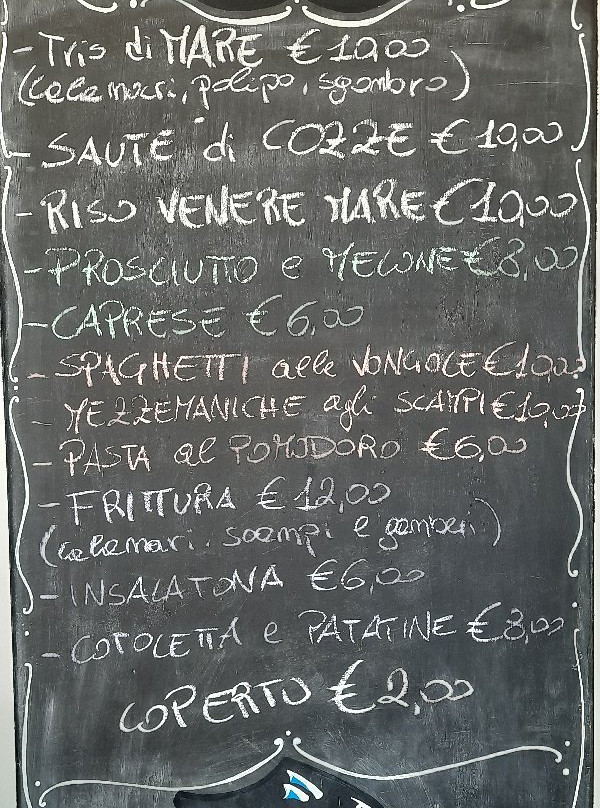 - Tris di MARE € 10,00
(calamari, polipo, sgombro)
- SAUTÉ di COZZE € 10,00
- RISO VENERE MARE € 10,00
- PROSCIUTTO e MELONE € 8,00
- CAPRESE € 6,00
- SPAGHETTI alle VONGOLE € 10,00
- MEZZEMANICHE agli SCAMPI € 10,00
- PASTA al POMODORO € 6,00
- FRITTURA € 12,00
(calamari, scampi e gamberi)
- INSALATONA € 6,00
- COTOLETTA e PATATINE € 8,00
COPERTO € 2,00